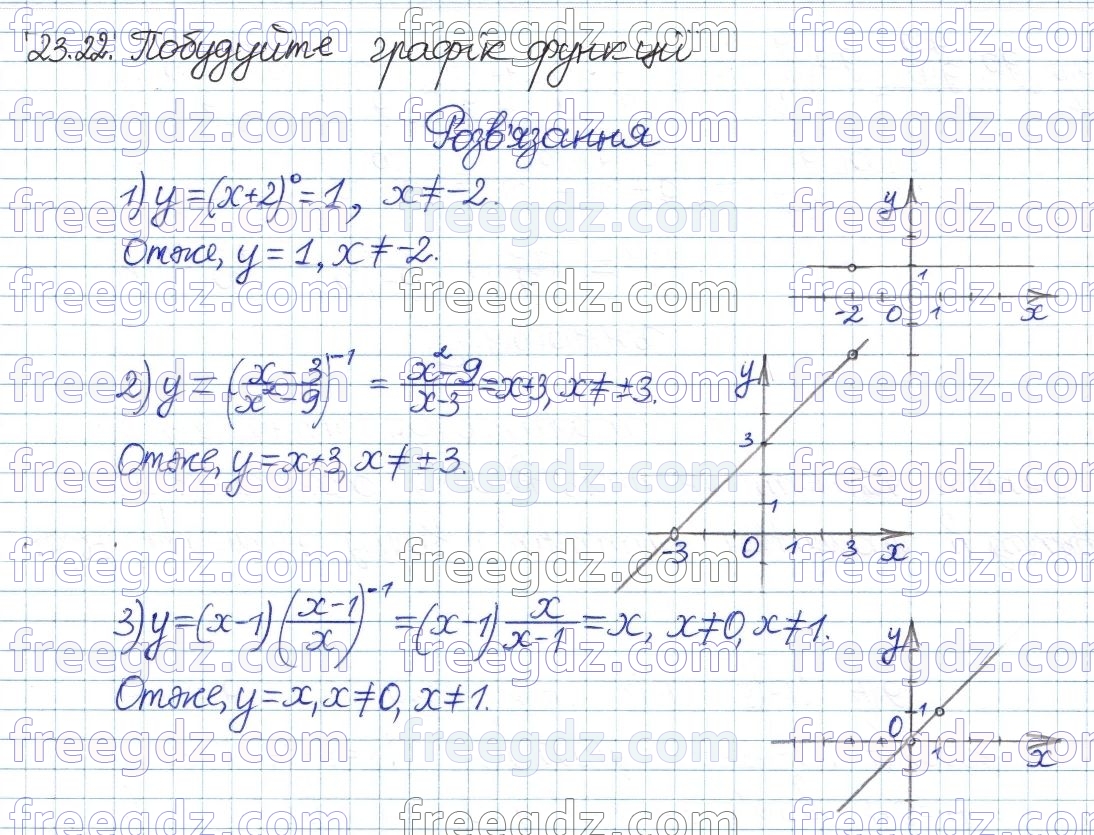 23.22. Побудуйте графік функції
Розв'язання
1) y = (x+2)⁰ = 1, x ≠ -2.
Отже, y = 1, x ≠ -2.
y
1
-2 0 1 x
2) y = ((x-3)/(x²-9))⁻¹ = (x²-9)/(x-3) = x+3, x ≠ ±3.
Отже, y = x+3, x ≠ ±3.
y
3
1
-3 0 1 3 x
3) y = (x-1)((x-1)/x)⁻¹ = (x-1) x/(x-1) = x, x ≠ 0, x ≠ 1.
Отже, y = x, x ≠ 0, x ≠ 1.
y
1
0
1 x
freegdz.com